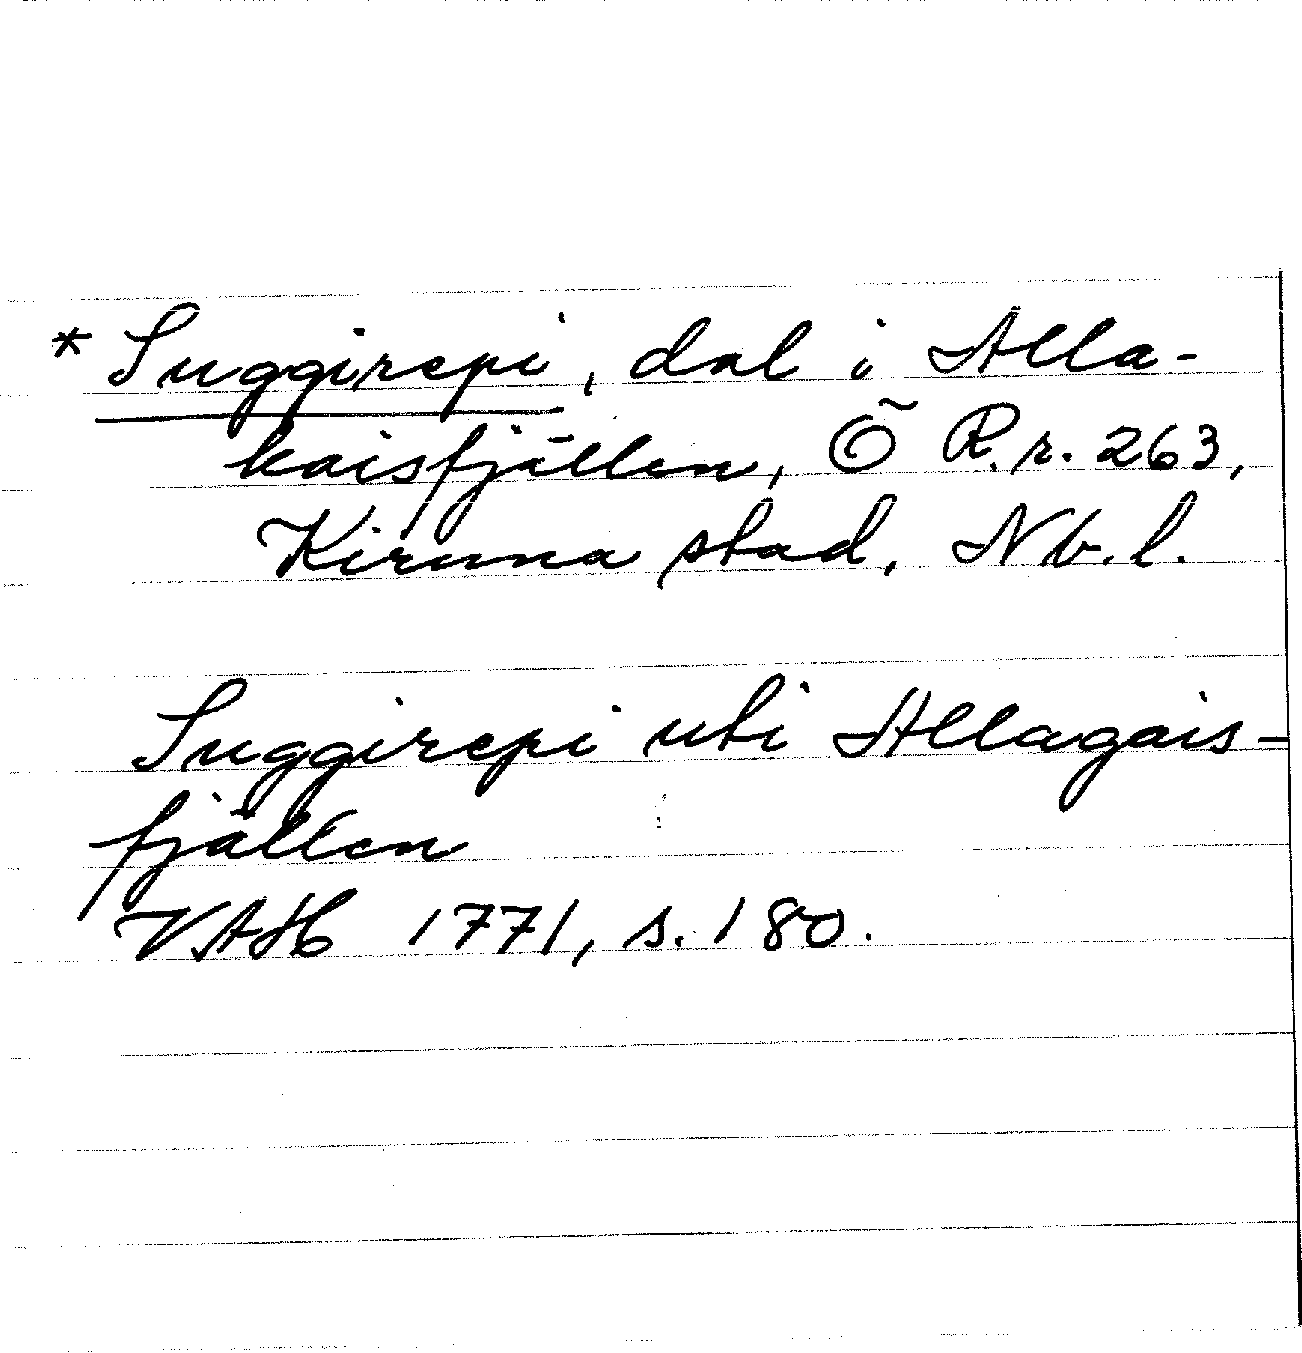 * Suggirepi, dal i Alla-
kaisfjällen, Ö R.r. 263,
Kiruna stad, Nb.l.
Suggirepi uti Allagais-
fjällen
VAH 1771, s. 180.